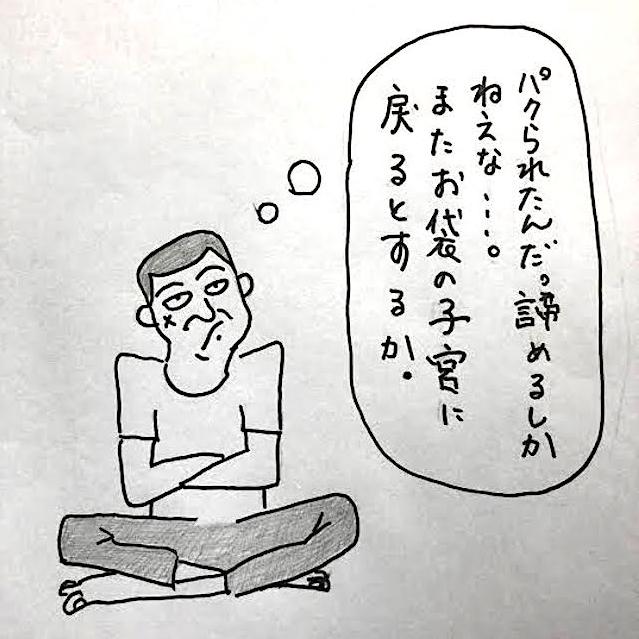 パクられたんだ。諦めるしか
ねえな…。
またお袋の子宮に
戻るとするか.